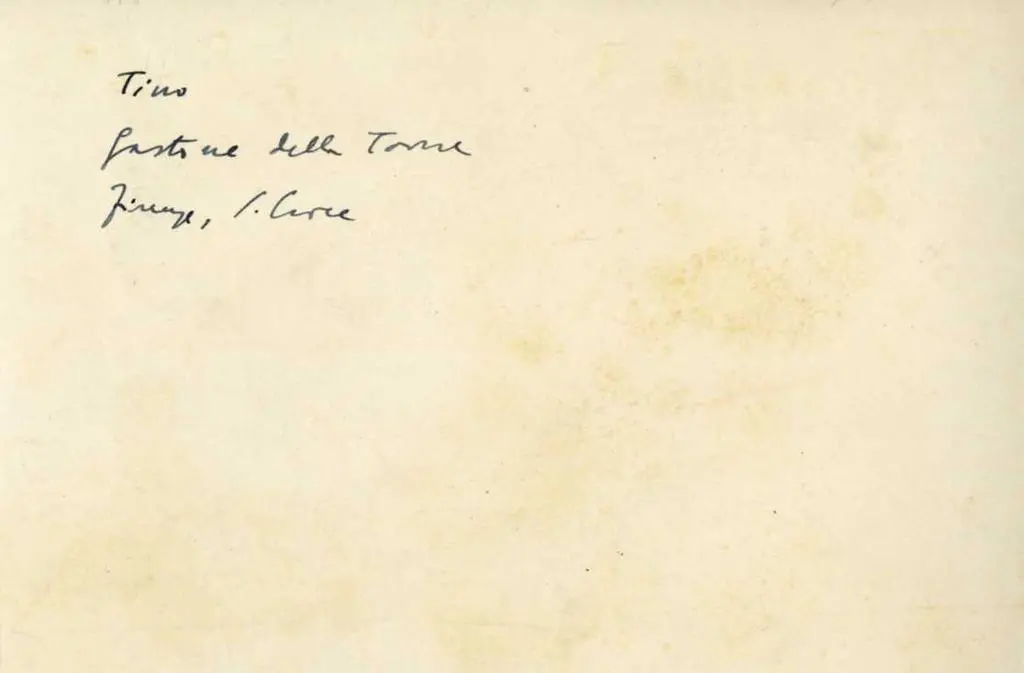 Tino
Gastone della Torre
Firenze, S. Croce